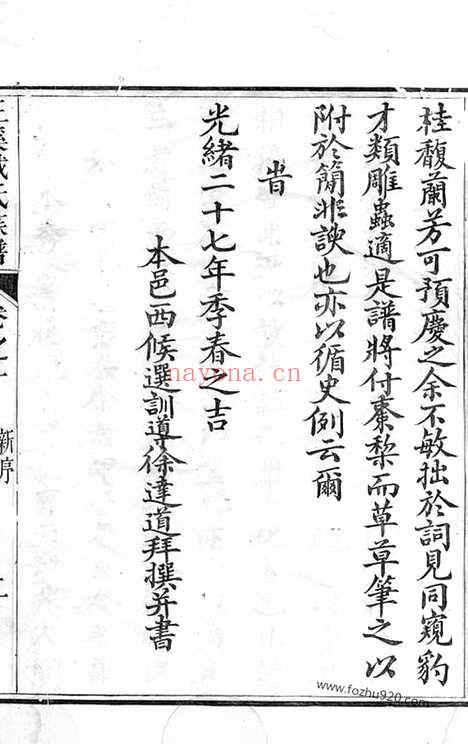 桂馥蘭芳可預慶之余不敏拙於詞見同窺豹
才類雕蟲適是譜將付棗梨而草草筆之以
附於簡非諛也亦以循史例云爾
旹
光緒二十七年季春之吉
本邑西候選訓導徐達道拜撰并書
氏族譜
卷之一
新序
nayona.cn
www.fozhu920.com